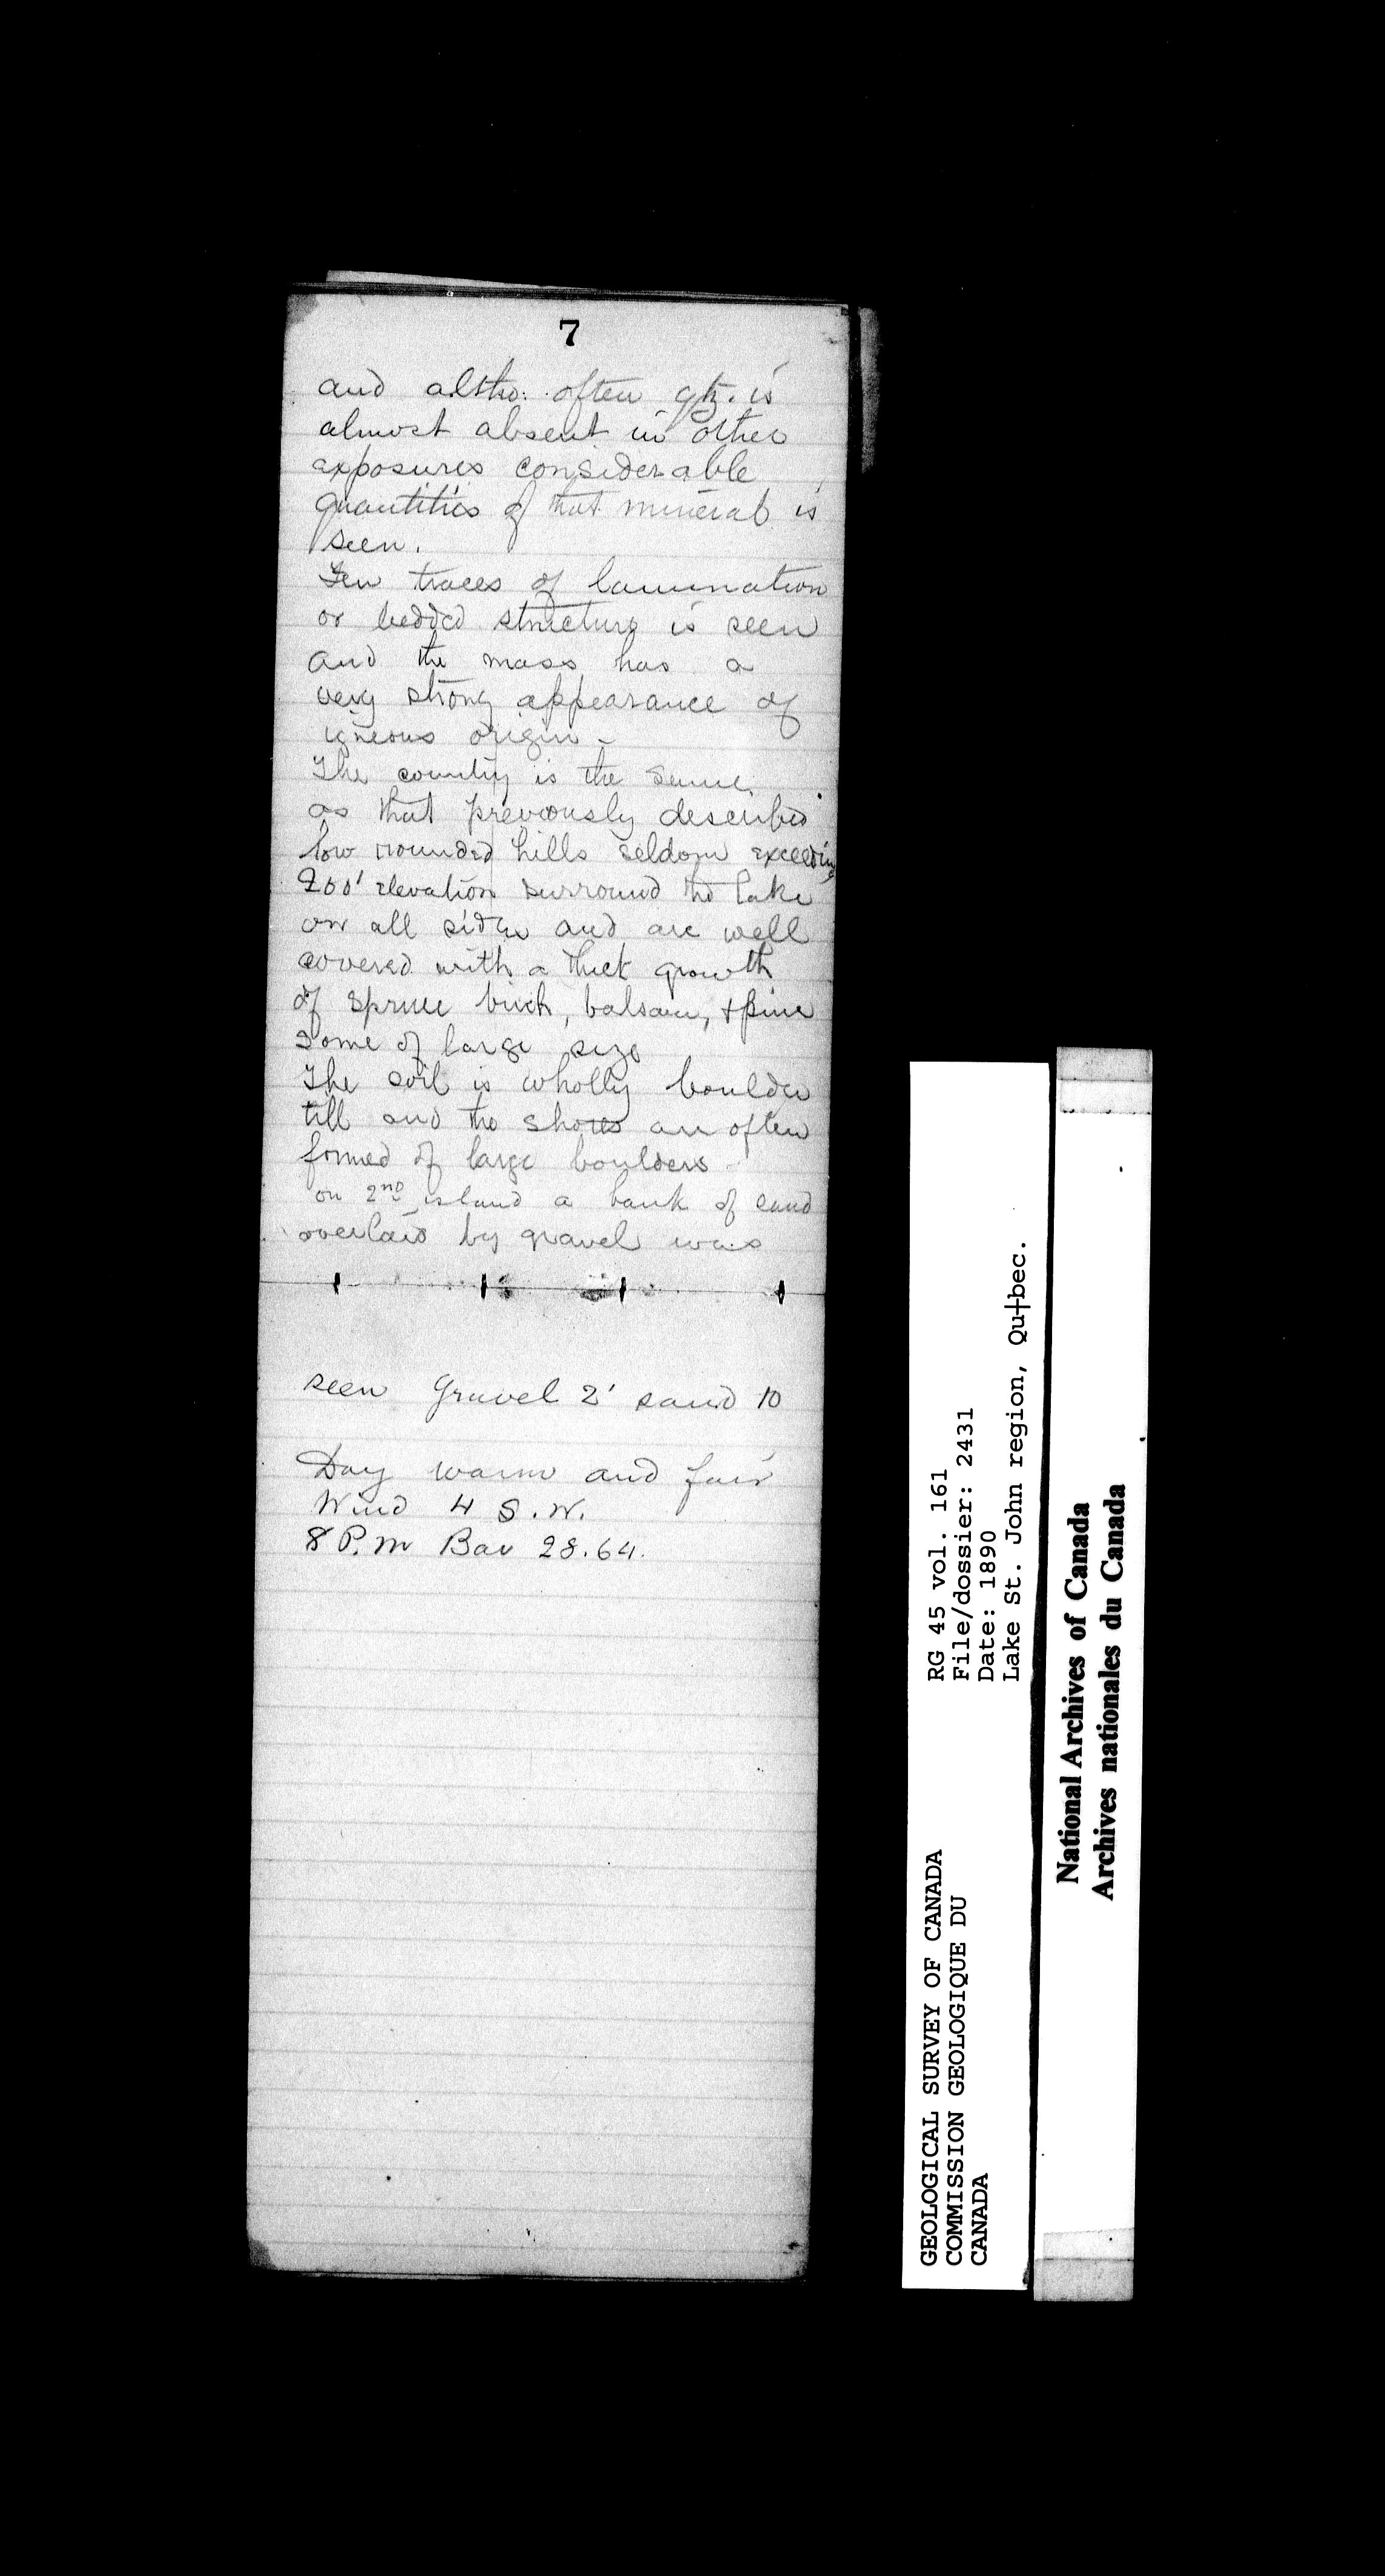 7
and altho: often qtz. is
almost absent in other
exposures considerable
quantities of that mineral is
seen.
Few traces of lamination
or bedded structure is seen
and the mass has a
very strong appearance of
igneous origin -
The country is the same
as that previously described
low rounded hills seldom exceeding
200' elevation surround the lake
on all sides and are well
covered with a thick growth
of spruce birch, balsam, + pine
some of large size
The soil is wholly boulder
till and the shores are often
formed of large boulders -
on 2nd island a bank of sand
overlaid by gravel was
seen Gravel 2' sand 10
Day warm and fair
Wind 4 S.W.
8 P.m Bar 28.64.
RG 45 vol. 161
File/dossier: 2431
Date: 1890
Lake St. John region, Qu†bec.
GEOLOGICAL SURVEY OF CANADA
COMMISSION GEOLOGIQUE DU
CANADA
National Archives of Canada
Archives nationales du Canada